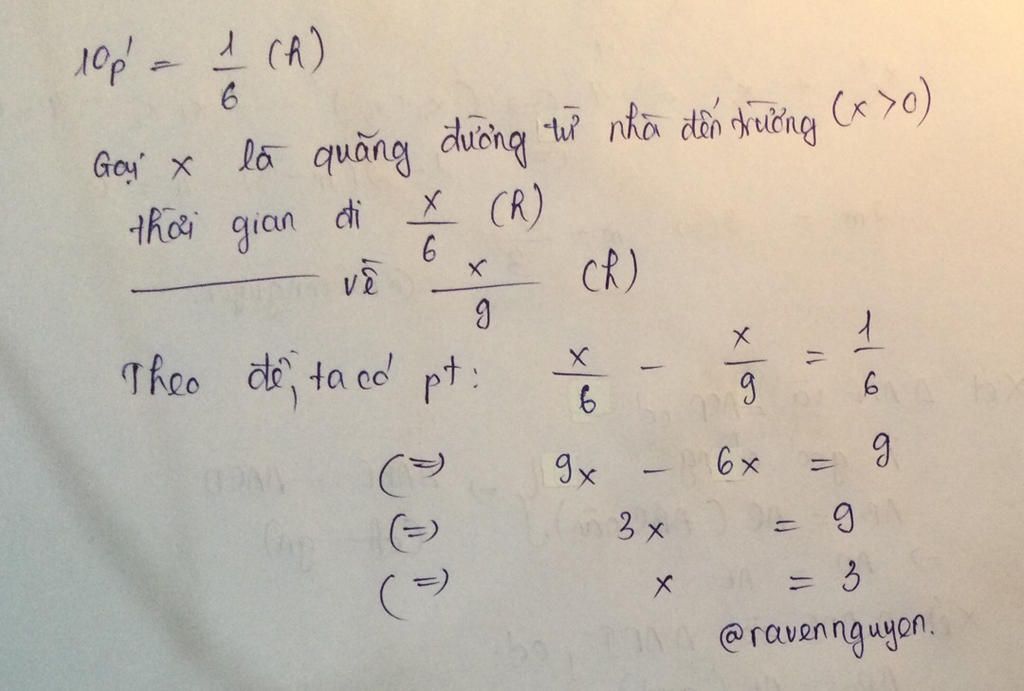 10p' = 1/6 (h)
Gọi x là quãng đường từ nhà đến trường (x > 0)
thời gian đi x/6 (h)
——— về x/9 (h)
Theo đề, ta có pt: x/6 - x/9 = 1/6
(=) 9x - 6x = 9
(=) 3x = 9
(=) x = 3
@ravennguyen.